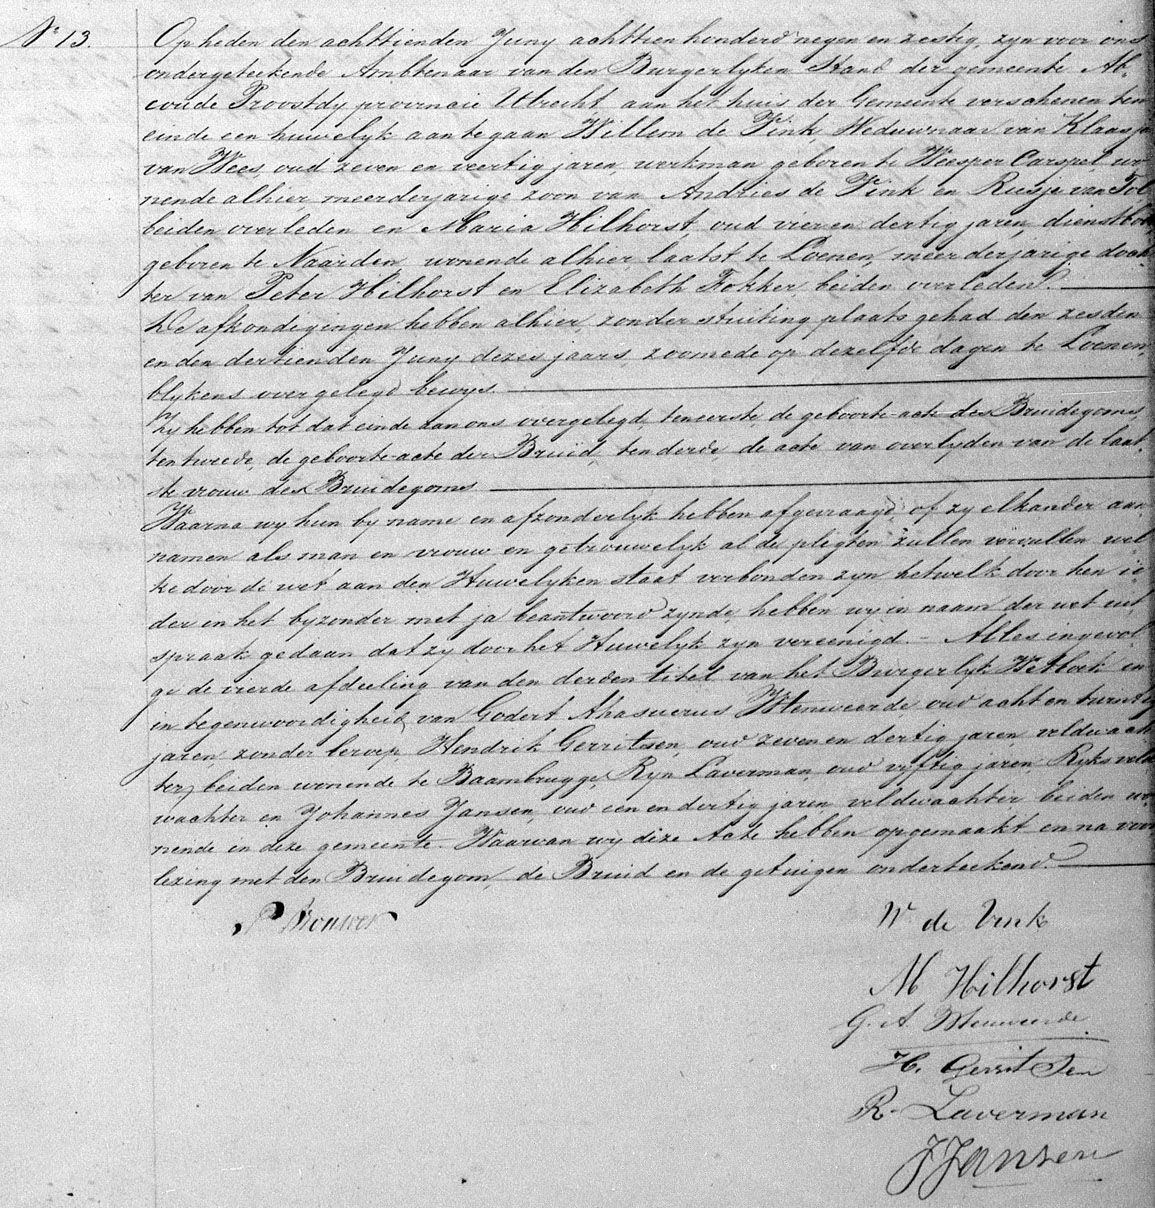 N° 13. Op heden den achttienden Juny achttien honderd negen en zestig, zyn voor ons
ondergeteekende Ambtenaar van den Burgerlyken Stand der gemeente Ab-
coude Proostdy provincie Utrecht aan het huis der Gemeente verschenen ten
einde een huwelyk aan te gaan Willem de Vink Weduwnaar van Klaasje
van Wees, oud zeven en veertig jaren, werkman geboren te Weesper Carspel, wo-
nende alhier meerderjarige zoon van Andries de Vink en Rusje van Tol
beiden overleden en Maria Hilhorst, oud vier en dertig jaren, dienstbode
geboren te Naarden, wonende alhier laatst te Loenen, meerderjarige doch-
ter van Peter Hilhorst en Elizabeth Fokker, beiden overleden.
De afkondigingen hebben alhier, zonder stuiting plaats gehad den zesden
en den dertienden Juny dezes jaars, zoomede op dezelfde dagen te Loenen,
blykens overgelegd bewys.
Zy hebben tot dat einde aan ons overgelegd, ten eerste, de geboorte-acte des Bruidegoms
ten tweede, de geboorte acte der Bruid, ten derde, de acte van overlyden van de laat-
ste vrouw des Bruidegoms
Waarna wy hun by name en afzonderlyk hebben afgevraagd of zy elkander aan-
namen als man en vrouw en getrouwelyk al de pligten zullen vervullen wel-
ke door de wet aan den Huwelyken staat verbonden zyn hetwelk door hen ie-
der in het byzonder met ja beantwoord zynde, hebben wy in naam der wet uit-
spraak gedaan dat zy door het Huwelyk zyn vereenigd. - Alles ingevol-
ge de vierde afdeeling van den derden titel van het Burgerlyk Wetboek en
in tegenwoordigheid van Godert Ahasuerus Wtenweerde oud acht en twintig
jaren zonder beroep, Hendrik Gerritsen, oud zeven en dertig jaren, veldwach-
ter, beiden wonende te Baambrugge, Ryn Laverman, oud vyftig jaren, Ryks veld-
wachter en Johannes Jansen, oud een en dertig jaren, veldwachter beiden wo-
nende in deze gemeente. Waarvan wy deze Acte hebben opgemaakt en na voor-
lezing met den Bruidegom, de Bruid en de getuigen onderteekend.
P Brouwer W de Vink
M Hilhorst
G. A. Wtenweerde
H. Gerritsen
R. Laverman
J Jansen